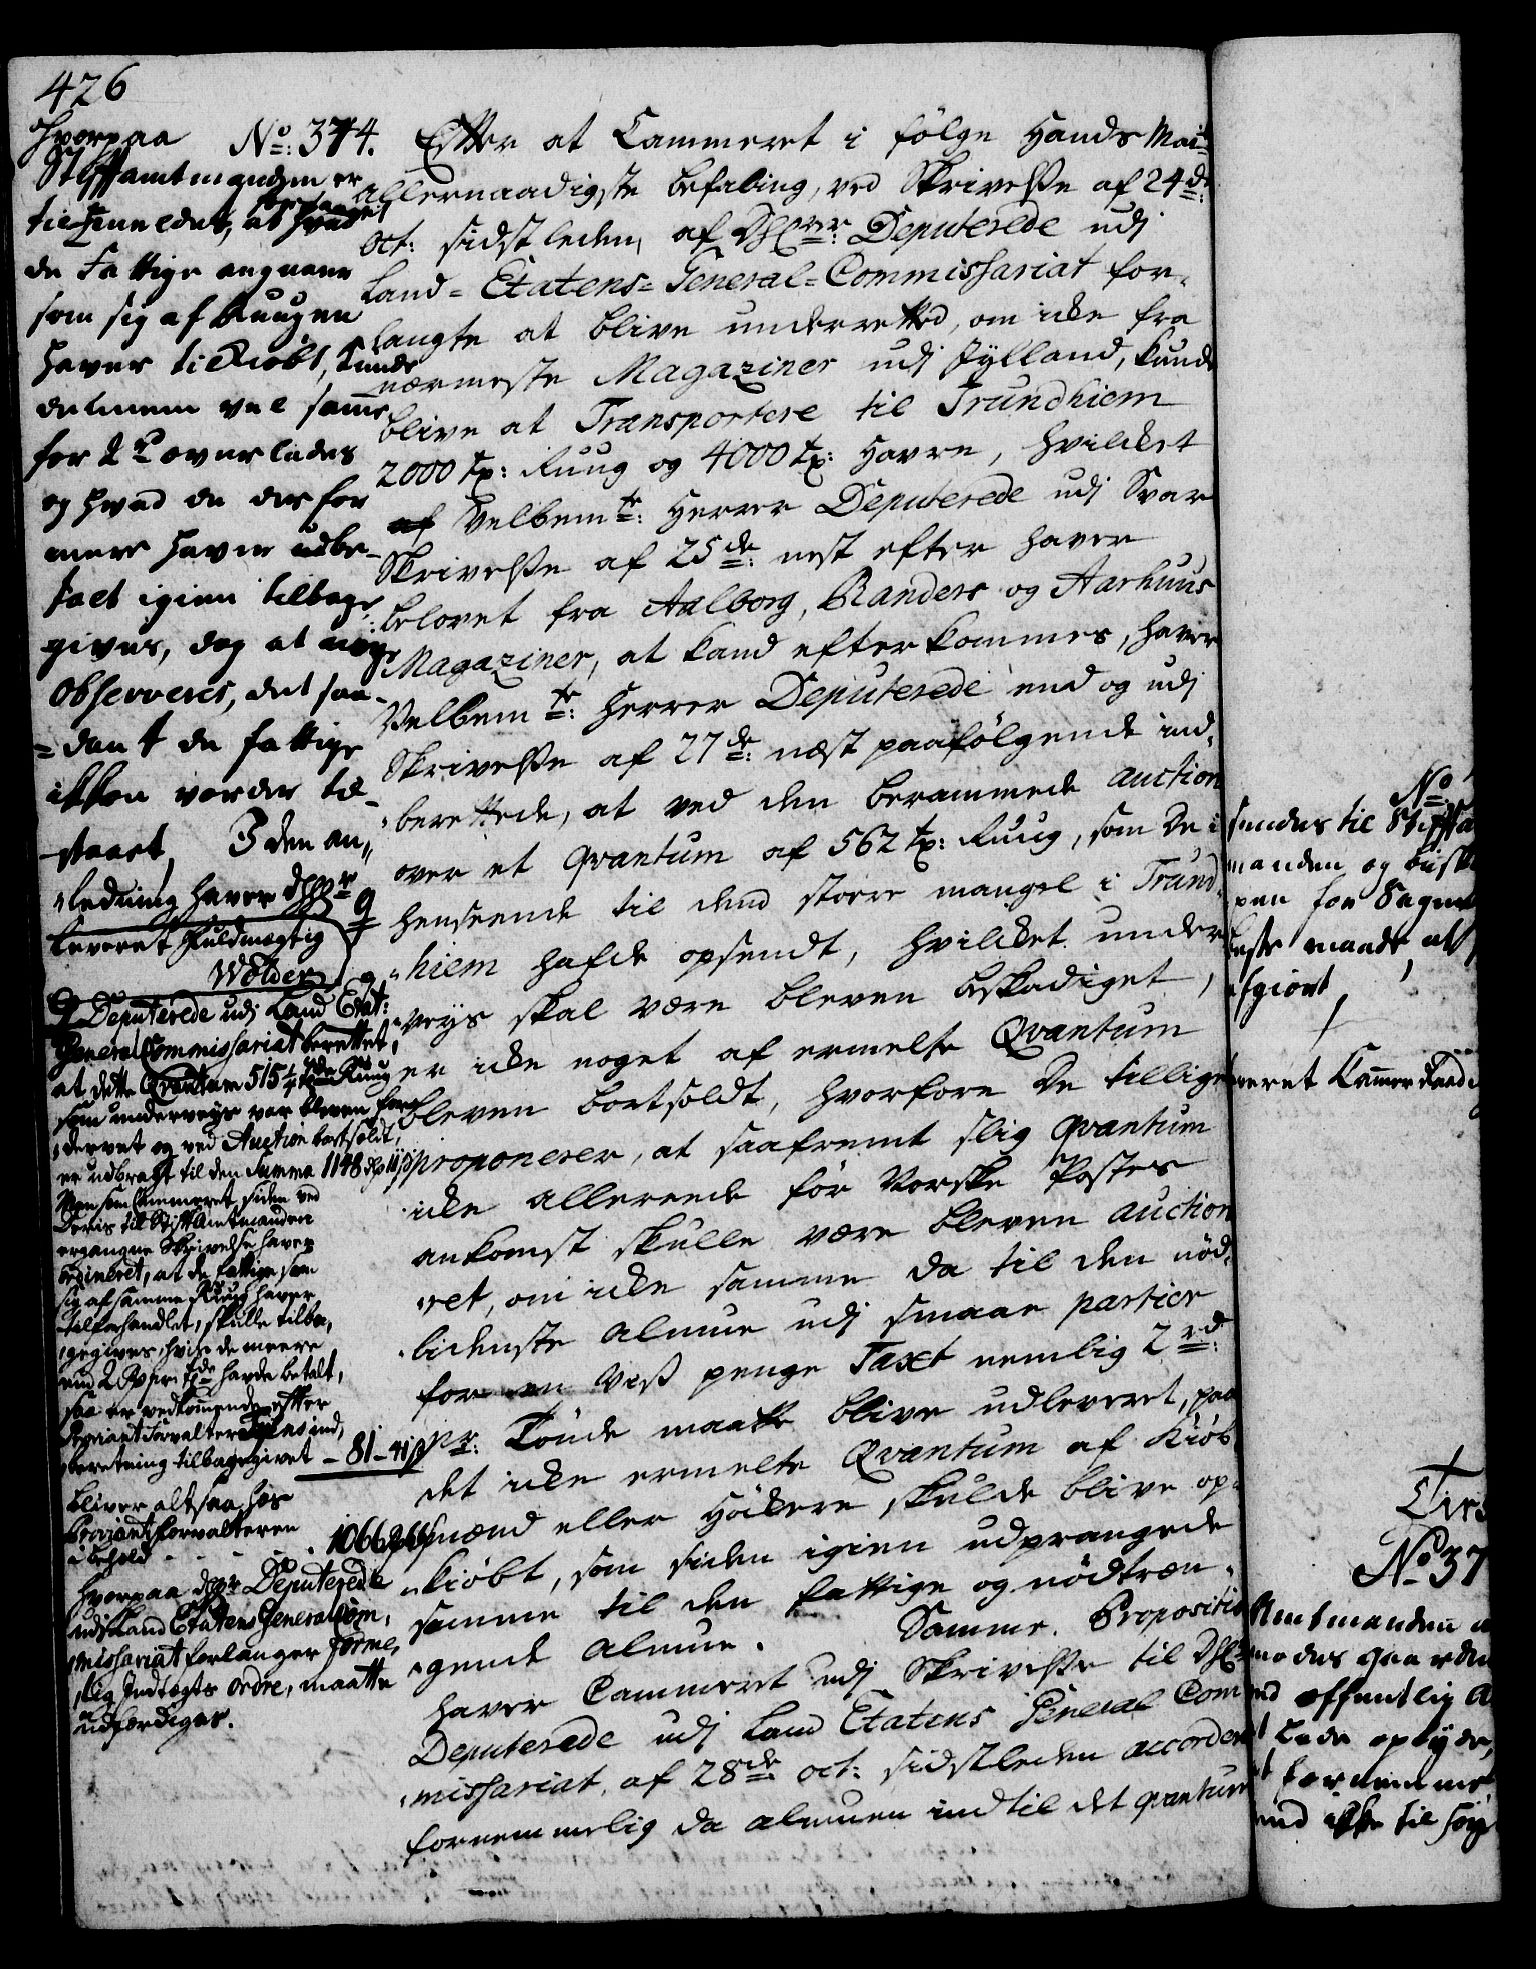 426
Hvorpaa
Stiftamtmanden er
tilmeldet, at hvad
de Fattige angaaer
som sig af Ruugen
haver tilkiøbt, kunde
dennem vel samme
for 2 rd overlades
og hvad de derfor
meere haver udbe-
talt igien tilbage
gives, dog at nøye
observeres, det saa-
=dant de fattige
ikkon vorder til-
staaet, I den an,,
,ledning haver dhhr
leveret Fuldmægtig
Wölder
Deputerede udj Land Etat:
General Commissariat berettet,
at dette Qvantum 515 1/4 tde Ruug
som underveys var bleven for,
,dervet og ved Auction bortsoldt,
er udbragt til den Summa 1148
Men som Cammeret siden ved
Deris til Stiftamtmanden
ergangne Skrivelse haver
ordineret, at de fattige, som
sig af samme Ruug haver
tilforhandlet, skulle tilba,
,gegives, hvis de meere
end 2 pr: tde havde betalt,
saa er vedkommende efter
Proviantforvalter ind,
,beretning tilbagegivet - 81 - 41 ß
Bliver altsaa hos
Proviantforvalteren
i behold - - - 1066
Hvorpaa dhhr Deputerede
udj Land Etatens General Com,
,missariat forlanger forme,
,lig Indtægts Ordre, maatte
udfærdiges.
No: 374. Efter at Cammeret i følge Hands Mai
allernaadigste befaling, ved Skrivelse af 24de
Oct: sidstleden, af Dhhrr: Deputerede udj
Land=Etatens=General=Commissariat for-
langte at blive underretted, om icke fra
nærmeste Magaziner udj Jylland, kunde
blive at Transportere til Trundhiem
2000 tr: Ruug og 4000 tr: Havre, hvilcket
af Velbemte: Herrer Deputerede udj Svar
Skrivelse af 25de: nest efter haver
belovet fra Aalborg, Randers og Aarhuus
Magaziner, at kand efterkommes, haver
Velbemte: Herrer Deputerede end og udj
Skrivelse af 27de: næst paafølgende ind,
,berettede, at ved den berammede auction
over et Qvantum af 562 tr: Ruug, som De i
henseende til dend store mangel i Trund,
,hiem hafde opsendt, hvilcket under
,veys skal være bleven beskadiget,
er icke noget af ermelte Qvantum
bleven bortsoldt, hvorfore De tillige
proponerer, at saafremt slig Qvantum
icke allereede før Norske Postes
ankomst skulle være bleven auction
,ret, om icke samme da til den nød,
,lidenste almue udj smaae partier
for en viss penge Taxt nemlig 2 rd:
pr: Tønde maatte blive udleveret, paa
det icke ermelte Qvantum af Kiøb,
mænd eller Höckere skulde blive op,
,kiøbt, som siden igien udprangede
samme til den fattige og nödtræn,
,gende almue. Samme Propositio
haver Cammeret udj Skrivelse til Dhhr
Deputerede udj Land Etatens General Com
,missariat, af 28de: Oct: sidstleden accorderet
fornemmelig da almuen indtil det qvantum
No
sendes til Stiftam
manden og bisk
pen for
beste maade, at
afgiort
leveret Cammer Raad
Tirs
No 37
Amtmanden
modes gaarden
ved offentlig A
lade opbyde,
fornemme
end ikke til høy